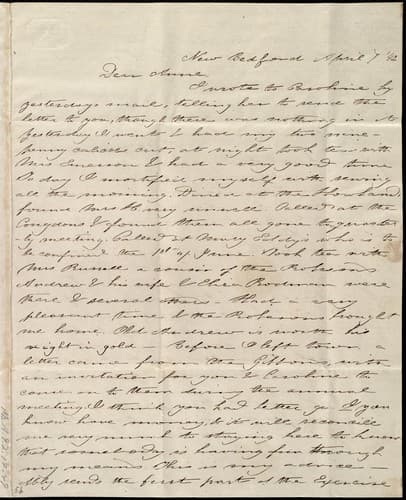 New Bedford April 7 /42
Dear Anne,
I wrote to Caroline by
yesterdays mail, telling her to send the
letter to you, though there was nothing in it
yesterday I went & had my two nine-
penny calicos cut, at night took tea with
Mrs Emerson & had a very good time
To day I mortified myself with sewing
all the morning. Dined at the
found Mrs H. very unwell called at the
Congdons & found them all gone to quarter-
ly meeting. Called at Mary Eddy's who is to
be confined the 1st of June. Took tea with
Mrs Russell a cousin of the Robesons
Andrew & his wife & Eliza Rodman were
there & several others - Had a very
pleasant time & the Robesons brought
me home. Old Andrew is worth his
weight in gold - Before I left town a
letter came from the Gibbons with
an invitation for you & Caroline to
come on to them during the annual
meeting. I think you had better go. If you
have money, & it will reconcile
me very much to staying here to know
that somebody is having fun through
my means. This is my advice -
Abby sends the first part of the Exercise